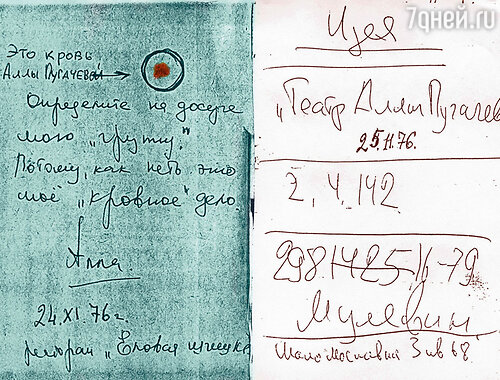 7дней.ru
Это кровь
Аллы Пугачевой →
Определите на досуге
мою „группу".
Потому, как петь это
моё „кровное" дело.
Алла
24.XI.76г.
ресторан „Еловая шишка
Идея
„Театр Аллы Пугачев
25.11.76.
2, 4, 142
298
16-79
Мулявин
Маломосковская 3 кв 68